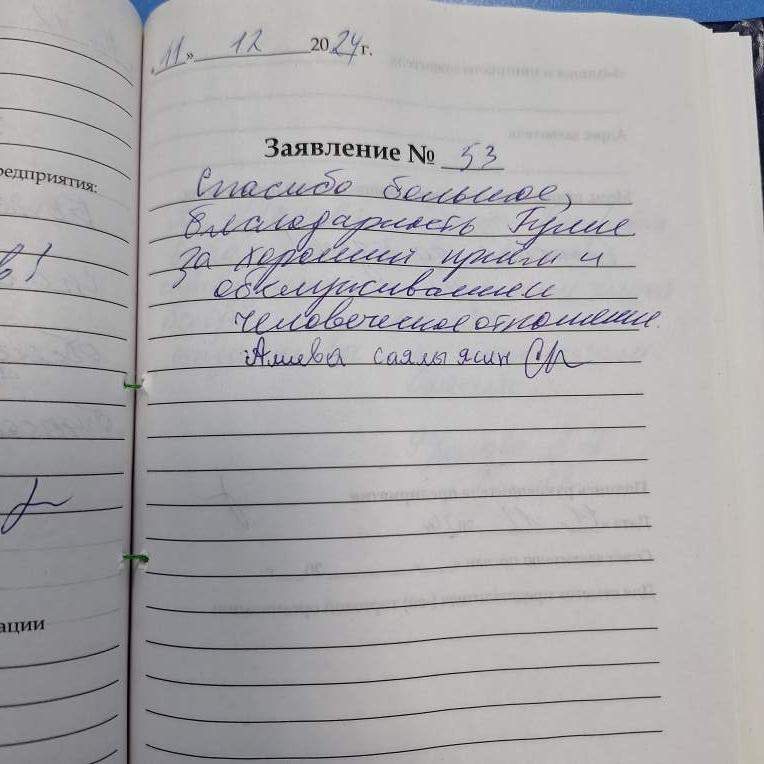 «11» 12 2024 г.
Заявление № 53
Спасибо большое,
благодарность Гулие
за хороший приём и
обслуживанием
человеческое отношение.
Алиева саялы ясин
редприятия:
ации